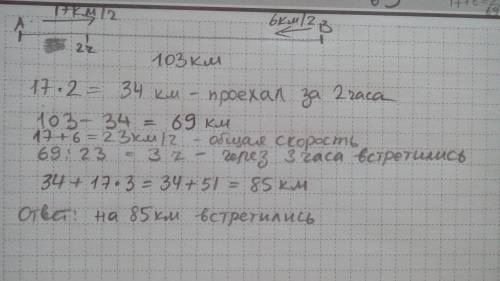 17км/г
6км/г
A
B
2г
103км
17·2 = 34 км - проехал за 2 часа
103 - 34 = 69 км
17+6 = 23км/г - общая скорость
69:23 = 3 г - через 3 часа встретились
34 + 17·3 = 34 + 51 = 85 км
Ответ: на 85км встретились